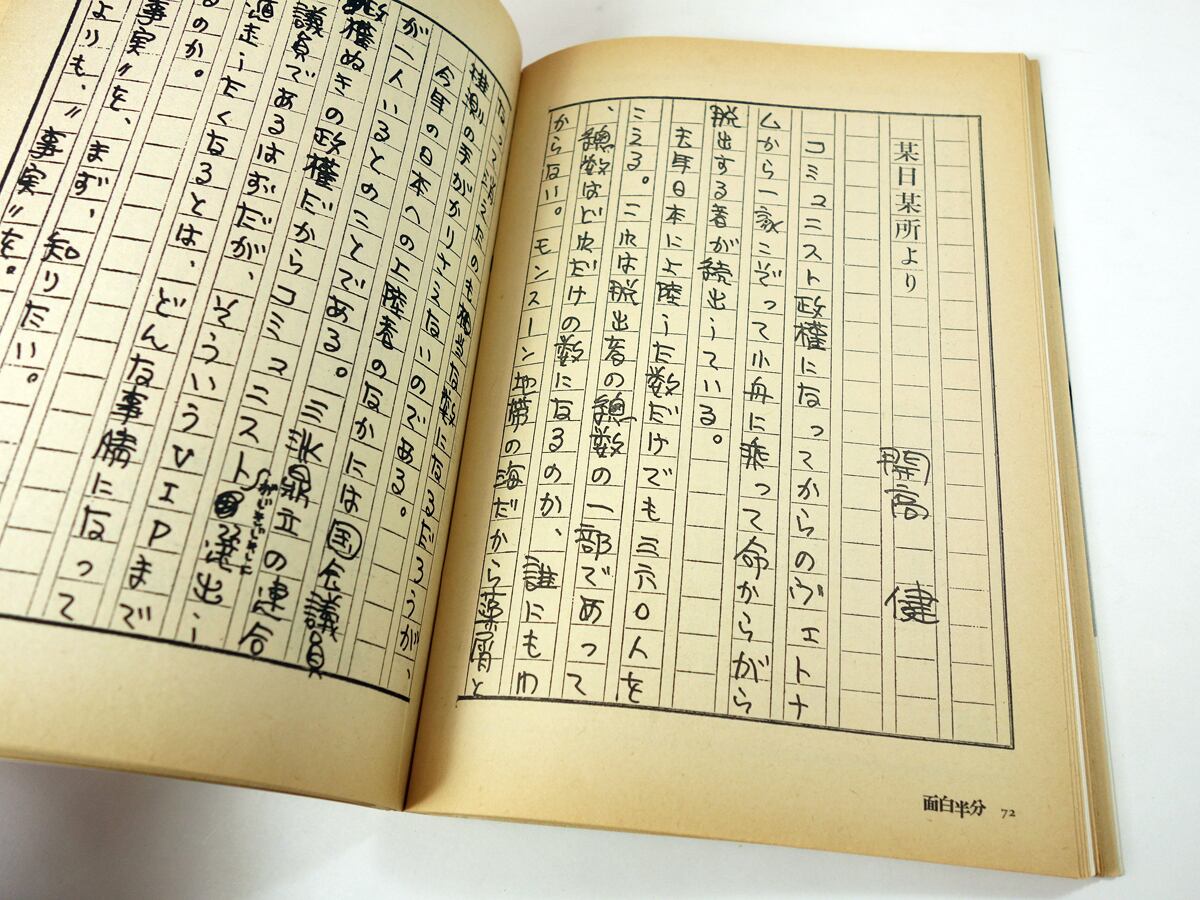 某日某所より
開高 健
コミュニスト政権になってからのヴェトナ
ムから一家こぞって小舟に乗って命からがら
脱出する者が続出している。
去年日本に上陸した数だけでも三六〇人を
こえる。これは脱出者の總数の一部であって
、總数はどれだけの数になるのか、誰にもわ
からない。モンスーン地帯の海だから藻屑と
なって消えたのも相当な数になるだろうが、
推測の手がかりさえないのである。
今年の日本への上陸者のなかには国会議員
が一人いるとのことである。三派鼎立の連合
政権ぬきの政権だからコミュニスト 選出し
議員であるはずだが、そういうVIPまで
したくなるとは、どんな事情になって
るのか。
事実〃を、まず、知りたい。
よりも、〃事実〃を。
面白半分 72